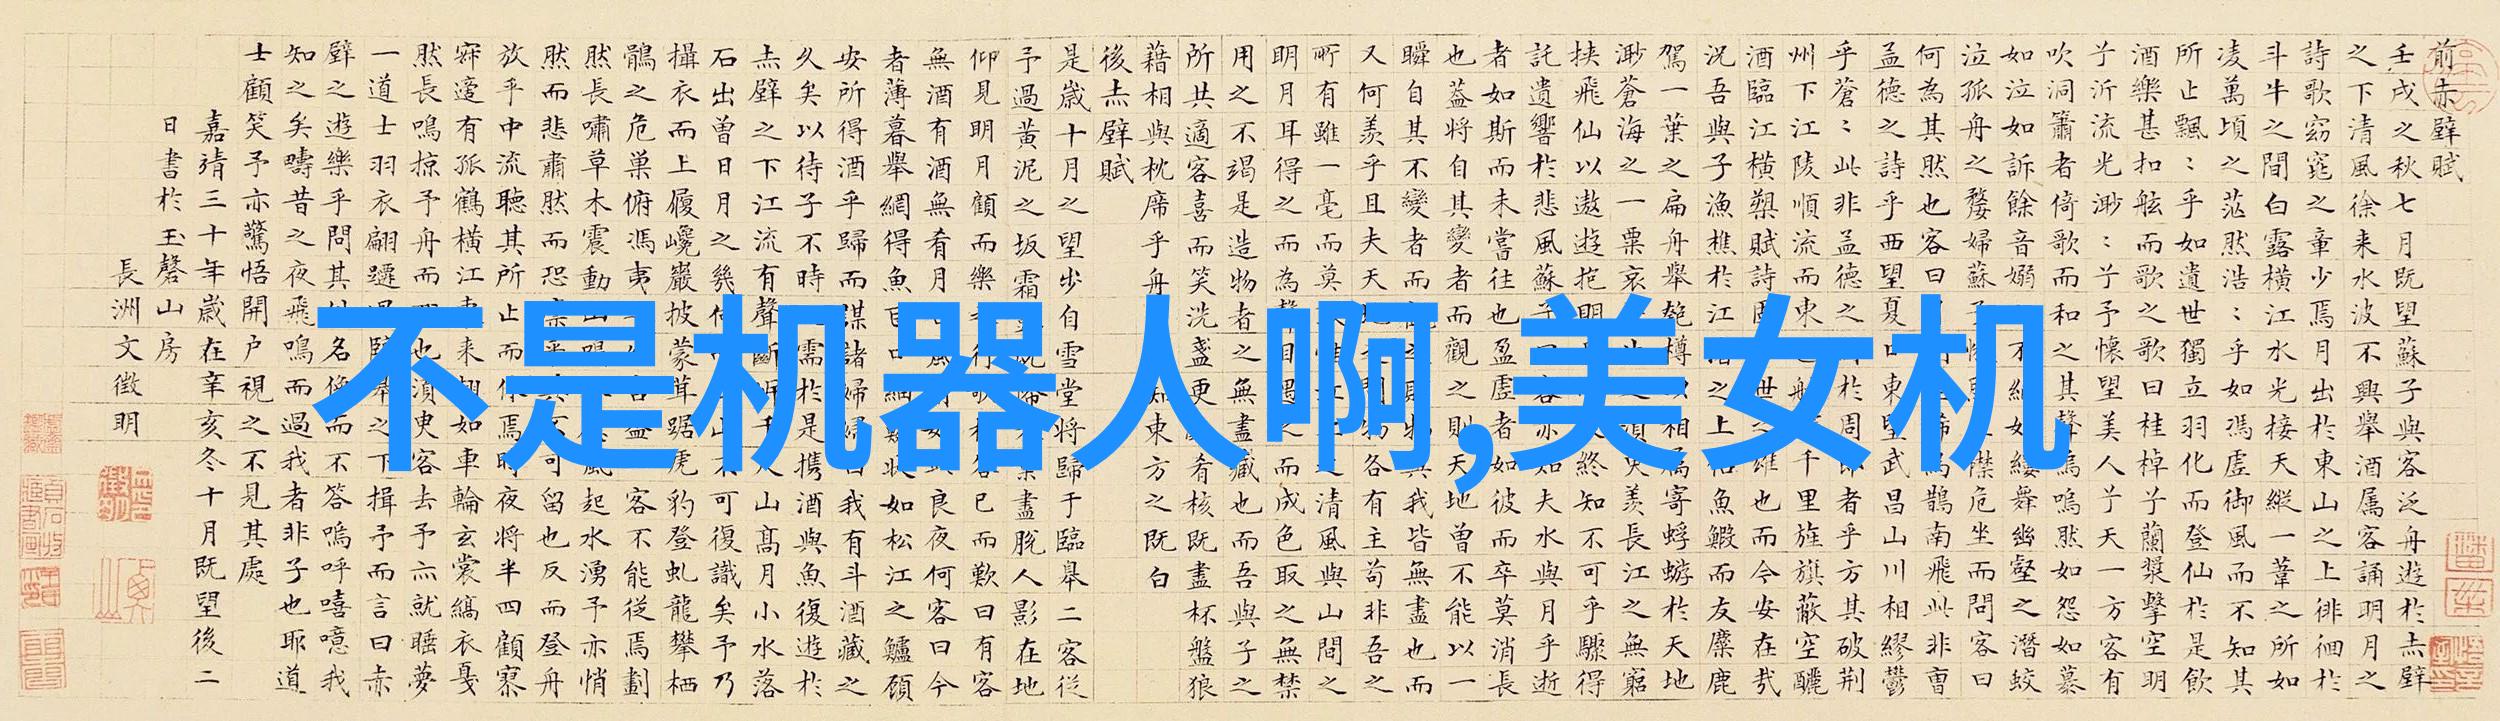 前赤壁賦
壬戌之秋七月既望蘇子與客泛舟遊於赤壁
之下清風徐来水波不興舉酒属客誦明月之
詩歌窈窕之章少焉月出於東山之上徘徊於
斗牛之間白露横江水光接天縱一葦之所如
凌萬頃之茫然浩:乎如馮虚御風而不知其
所止飄:乎如遺世獨立羽化而登仙於是飲
酒樂甚扣舷而歌之歌曰桂棹兮蘭槳擊空明
兮泝流光渺:兮予懷望美人兮天一方客有
吹洞簫者倚歌而和之其聲嗚嗚然如怨如慕
如泣如訴餘音嫋不絶如縷舞幽壑之潜蛟
泣孤舟之嫠婦蘇子襟危坐而問客曰
何為其然也客曰稀烏鵲南飛此非曹
孟德之詩乎西望夏口東望武昌山川相繆鬱
乎蒼:此非孟德之於周者乎方其破荆
州下江陵順流而東千里旌旗蔽空釃
酒臨江横槊賦詩世雄也而今安在哉
况吾與子漁樵於江之上魚鰕而友麋鹿
駕一葉之扁舟舉匏樽相属寄蜉蝣於天地
渺蒼海之一粟哀羡長江之無窮
挟飛仙以遨遊抱明終知不可乎驟得
託遺響於悲風蘇子客亦如夫水與月乎逝
者如斯而未嘗往也盈虚者如彼而卒莫消長
也蓋将自其變者而觀之則天地曾不能以一
瞬自其不變者而與我皆無盡也而
又何羡乎且夫天物各有主苟非吾之
所有雖一毫而莫之清風與山間之
明月耳得之而為聲目遇之而成色取之無禁
用之不竭是造物者之無盡藏也而吾與子之
所共適客喜而笑洗盞更肴核既盡杯盤狼
藉相與枕席乎舟知東方之既白
後赤壁賦
是歲十月之望步自雪堂将歸于臨皋二客從
予過黄泥之坂霜盡脱人影在地
仰見明月顧而樂行歌客已而歎曰有客
無酒有酒無肴月風良夜何客曰今
者薄暮舉網得魚状如松江之鱸顧
安所得酒乎歸而謀諸婦婦曰我有斗酒藏之
久矣以待子不時需於是携酒與魚復遊於
赤壁之下江流有聲斷岸千山高月小水落
石出曾日月之幾何可復識矣予乃
攝衣而上履巉巖披蒙茸踞虎豹登虬龍攀栖
鶻之危巢俯馮夷客不能從焉劃
然長嘯草木震動山鳴風起水湧予亦悄
然而悲肅然而恐可留也反而登舟
放乎中流聴其所止而休焉時夜将半四顧寥
寂適有孤鶴横江来翅如車輪玄裳縞衣戛
然長鳴掠予舟而也湏臾客去予亦就睡夢
一道士羽衣翩躚過臨之下揖予而言曰赤
壁之遊樂乎問其姓名俛而不答嗚呼嘻噫我
知之矣疇昔之夜飛鳴而過我者非子也耶道
士顧笑予亦驚悟開户視之不見其處
嘉靖三十年歲在辛亥冬十月既望後二
日書於玉磬山房
長洲文徵明
不是机器人啊,美女机